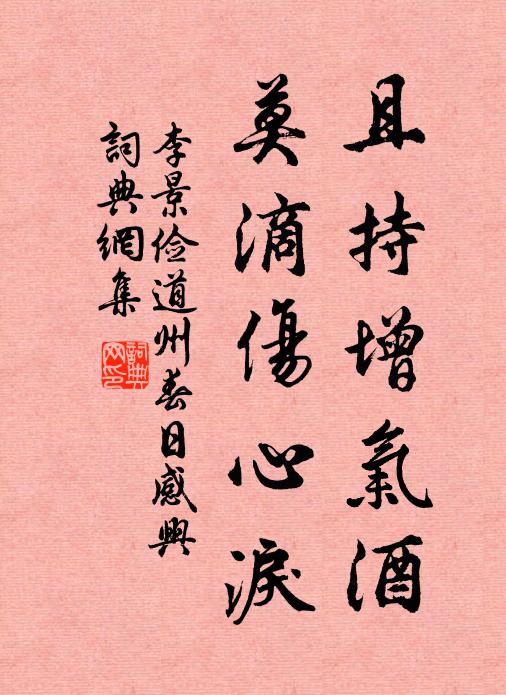 且持增氣酒
莫滴傷心淚
李景儉道州春日感興
詞典網集
詞典
网印